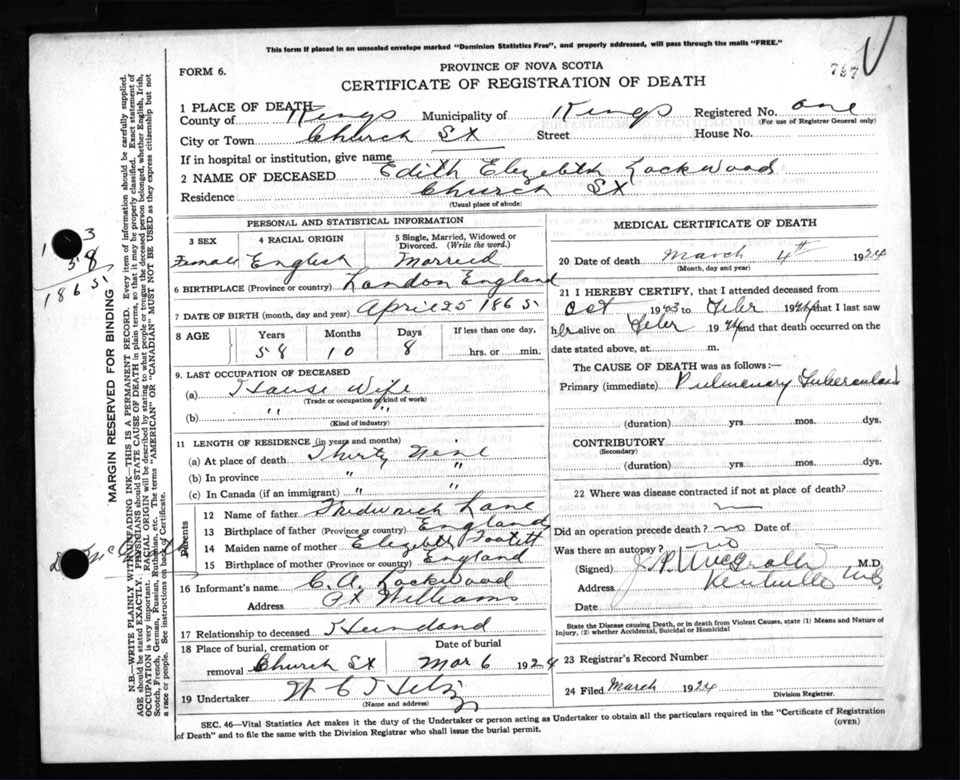 This form if placed in an unsealed envelope marked "Dominion Statistics Free", and properly addressed, will pass through the mails "FREE."
FORM 6.
PROVINCE OF NOVA SCOTIA
797
CERTIFICATE OF REGISTRATION OF DEATH
1 PLACE OF DEATH
County of Kings Municipality of Kings Registered No. one
(For use of Registrar General only)
City or Town Church St Street House No.
If in hospital or institution, give name
2 NAME OF DECEASED Edith Elezebth Lockwood
Residence Church St
(Usual place of abode)
PERSONAL AND STATISTICAL INFORMATION
3 SEX 4 RACIAL ORIGIN 5 Single, Married, Widowed or Divorced. (Write the word.)
Female English Married
6 BIRTHPLACE (Province or country) London England
7 DATE OF BIRTH (month, day and year) April 25 1865
8 AGE Years Months Days If less than one day,
58 10 8 hrs. or min.
9. LAST OCCUPATION OF DECEASED
(a) House Wife
(Trade or occupation or kind of work)
(b) " "
(Kind of industry)
11 LENGTH OF RESIDENCE (in years and months)
(a) At place of death Thirty Nine
(b) In province " "
(c) In Canada (if an immigrant) " "
Parents
12 Name of father Lane
13 Birthplace of father (Province or country) England
14 Maiden name of mother Elezebth
15 Birthplace of mother (Province or country) England
16 Informant's name C. A. Lockwood
Address Pt Williams
17 Relationship to deceased Husband
18 Place of burial, cremation or removal Church St
Date of burial Mar 6 1924
19 Undertaker W C
(Name and address)
MEDICAL CERTIFICATE OF DEATH
20 Date of death March 4th 1924
(Month, day and year)
21 I HEREBY CERTIFY, that I attended deceased from
Oct 1923 to Feber 1924 that I last saw
her alive on Feber 1924 and that death occurred on the
date stated above, at m.
The CAUSE OF DEATH was as follows:—
Primary (immediate) Pulmonary Tuberculosis
(duration) yrs. mos. dys.
CONTRIBUTORY
(Secondary)
(duration) yrs. mos. dys.
22 Where was disease contracted if not at place of death?
Did an operation precede death? no Date of
Was there an autopsy? no
(Signed) J. P. McGrath M.D.
Address Kentville N.S.
Date
State the Disease causing Death, or in death from Violent Causes, state (1) Means and Nature of Injury, (2) whether Accidental, Suicidal or Homicidal
23 Registrar's Record Number
24 Filed March 1924
Division Registrar.
SEC. 46—Vital Statistics Act makes it the duty of the Undertaker or person acting as Undertaker to obtain all the particulars required in the "Certificate of Registration
of Death" and to file the same with the Division Registrar who shall issue the burial permit.
(OVER)
MARGIN RESERVED FOR BINDING
N.B.—WRITE PLAINLY WITH UNFADING INK—THIS IS A PERMANENT RECORD. Every item of information should be carefully supplied.
AGE should be stated EXACTLY. PHYSICIANS should STATE CAUSE OF DEATH in plain terms, so that it may be properly classified. Exact statement of
OCCUPATION is very important. RACIAL ORIGIN will be described by stating to what people or tongue the deceased person belonged, whether English, Irish,
Scotch, French, German, Russian, Ruthenian, etc. The terms "AMERICAN" or "CANADIAN" MUST NOT BE USED as they express citizenship but not
a race or people. See instructions on back of Certificate.
58
1865